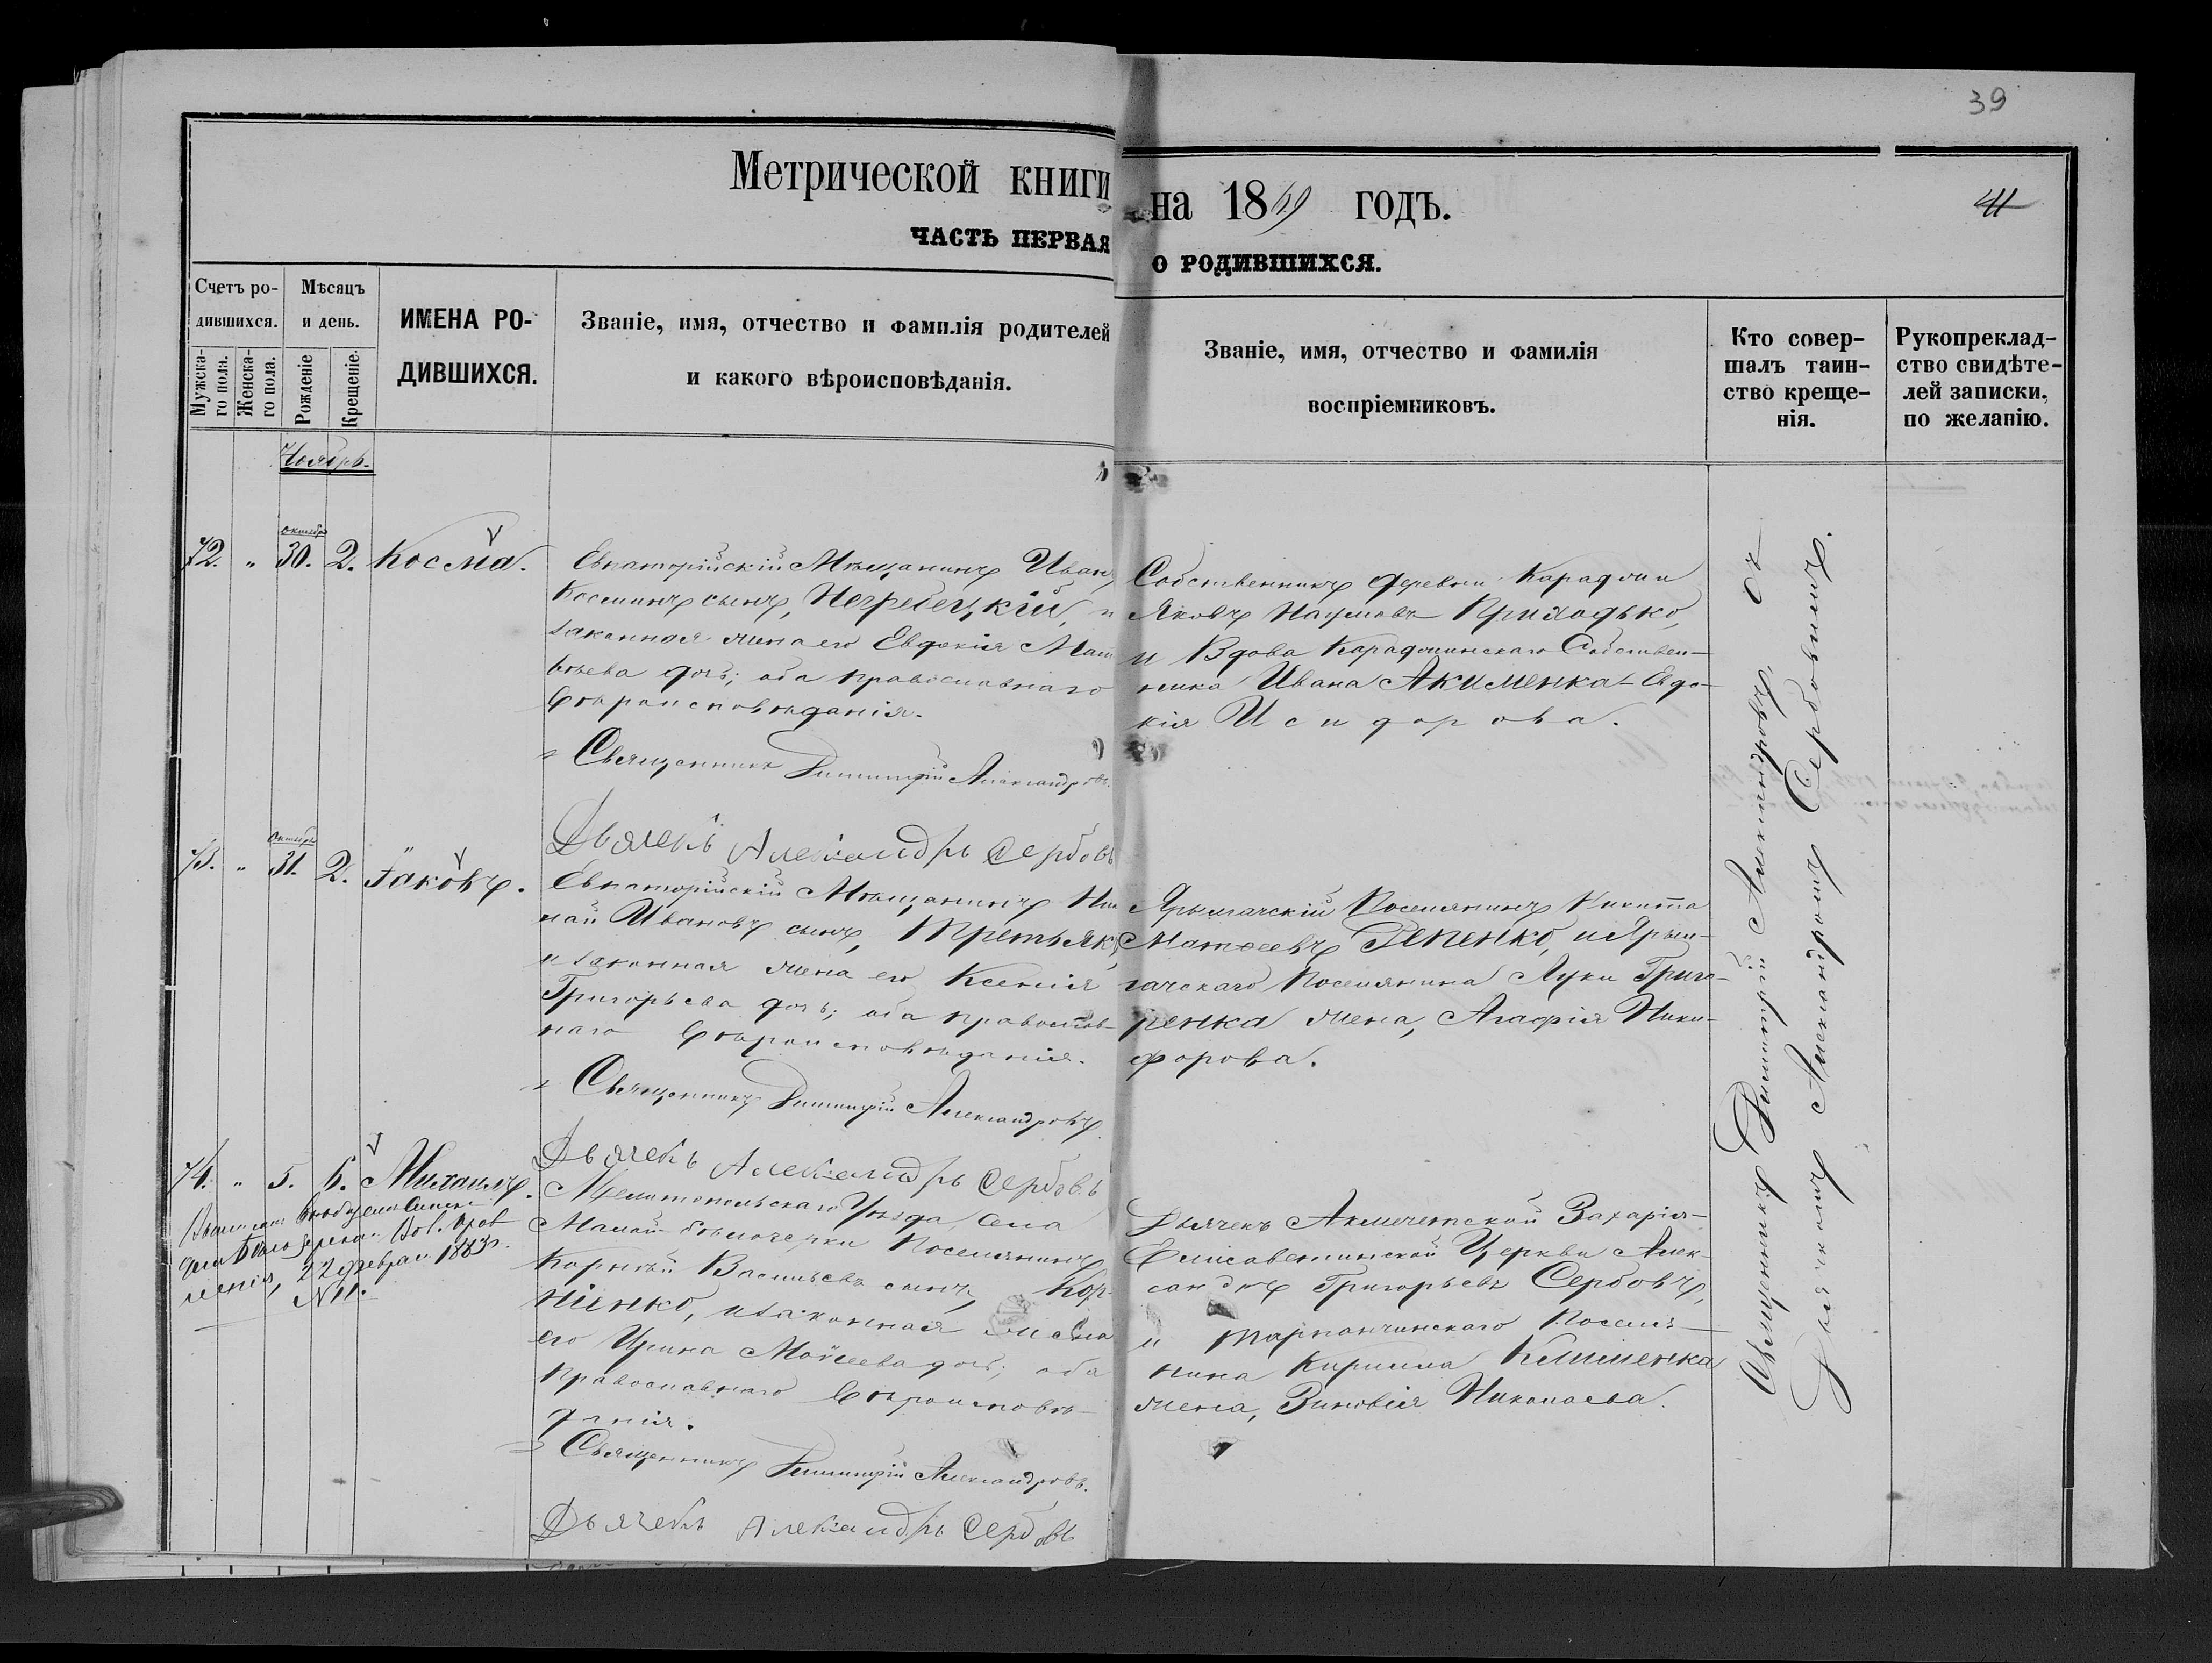 39
Метрической книги на 1869 годъ.
41
ЧАСТЬ ПЕРВАЯ О РОДИВШИХСЯ.
Счетъ ро-
дившихся.
Мужска-
го пола.
Женска-
го пола.
Мѣсяцъ
и день.
Рожденіе
Крещеніе.
ИМЕНА РО-
ДИВШИХСЯ.
Званіе, имя, отчество и фамилія родителей
и какого вѣроисповѣданія.
Званіе, имя, отчество и фамилія
воспріемниковъ.
Кто совер-
шалъ таин-
ство креще-
нія.
Рукоприклад-
ство свидѣте-
лей записки,
по желанію.
Ноябрь.
72. " октября 30. 2. Косма.
Евпаторійскій Мѣщанинъ Иванъ
Косминъ сынъ, Негребецкій, и
законная жена его Евдокія Мат
вѣева дочь; оба православнаго
вѣроисповѣданія.
Священникъ Димитрій Александровъ.
Дьячекъ Александръ Сербовъ
Собственникъ деревни
Яковъ Наумовъ Приходько,
и Вдова Собствен-
ника Ивана Акименка Евдо-
кія Исидорова.
73. " октября 31. 2. Іаковъ.
Евпаторійскій Мѣщанинъ Ник
лай Ивановъ сынъ, Третьяк,
и законная жена его Ксенія
Григорьева дочь; оба православ-
наго вѣроисповѣданія.
Священникъ Димитрій Александровъ.
Дьячекъ Александръ Сербовъ
Ярылгачскій Поселянинъ Никита
Матѳеевъ Репенко, и Ярыл-
гачскаго Поселянина Луки Григо-
ренка жена, Агафія Ники-
форова.
74. " 5. 6. Михаилъ.
22 февраля 1883 г.
N 11.
Мелитопольскаго Уѣзда, Села
Малой-бѣлозерки Поселянинъ
Корнѣй Васильевъ сынъ, Кор-
ніенко, и законная жена
его Ирина Моисеева дочь; оба
Православнаго вѣроисповѣ-
данія.
Священникъ Димитрій Александровъ.
Дьячекъ Александръ Сербовъ
Дьячекъ Акмечетской Захарія-
Елисаветинской Церкви Алек-
сандръ Григорьевъ Сербовъ,
и Тарпанчинскаго Поселя-
нина Кирилла Клименка
жена, Зиновія Николаева.
Священникъ Димитрій Александровъ, съ
Дьячкомъ Александромъ Сербовымъ.